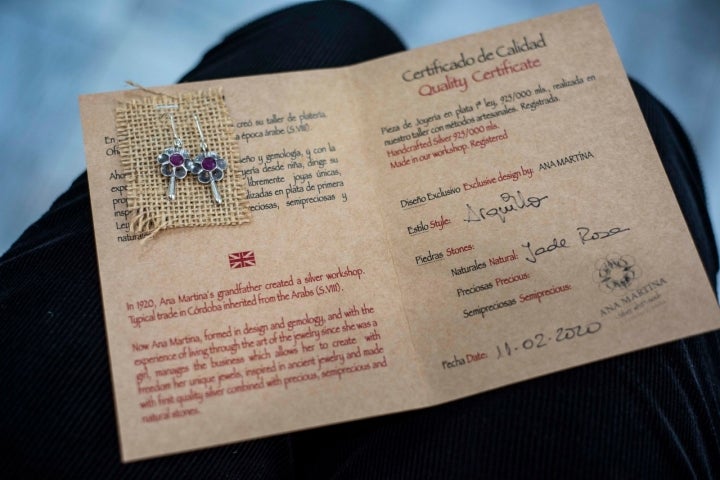 En
creó su taller de platería.
Ofi
a época árabe (S.VIII).
Aho
seño y gemología, y con la
exp
yería desde niña, dirige su
prop
libremente joyas únicas,
insp
alizadas en plata de primera
Ley
eciosas, semipreciosas y
natura
In 1920, Ana Martina's grandfather created a silver workshop.
Typical trade in Córdoba inherited from the Arabs (S.VIII).
Now Ana Martina, formed in design and gemology, and with the
experience of living through the art of the jewelry since she was a
girl, manages the business which allows her to create with
freedom her unique jewels, inspired in ancient jewelry and made
with first quality silver combined with precious, semiprecious and
natural stones.
Certificado de Calidad
Quality Certificate
Pieza de Joyería en plata 1ª ley, 925/000 mls., realizada en
nuestro taller con métodos artesanales. Registrada.
Handcrafted Silver 925/000 mls.
Made in our workshop. Registered
Diseño Exclusivo Exclusive design by: ANA MARTÍNA
Estilo Style:
Piedras Stones:
Naturales Natural: Jade Rosa
Preciosas Precious:
Semipreciosas Semiprecious:
ANA MARTINA
Fecha Date: 11-02-2020